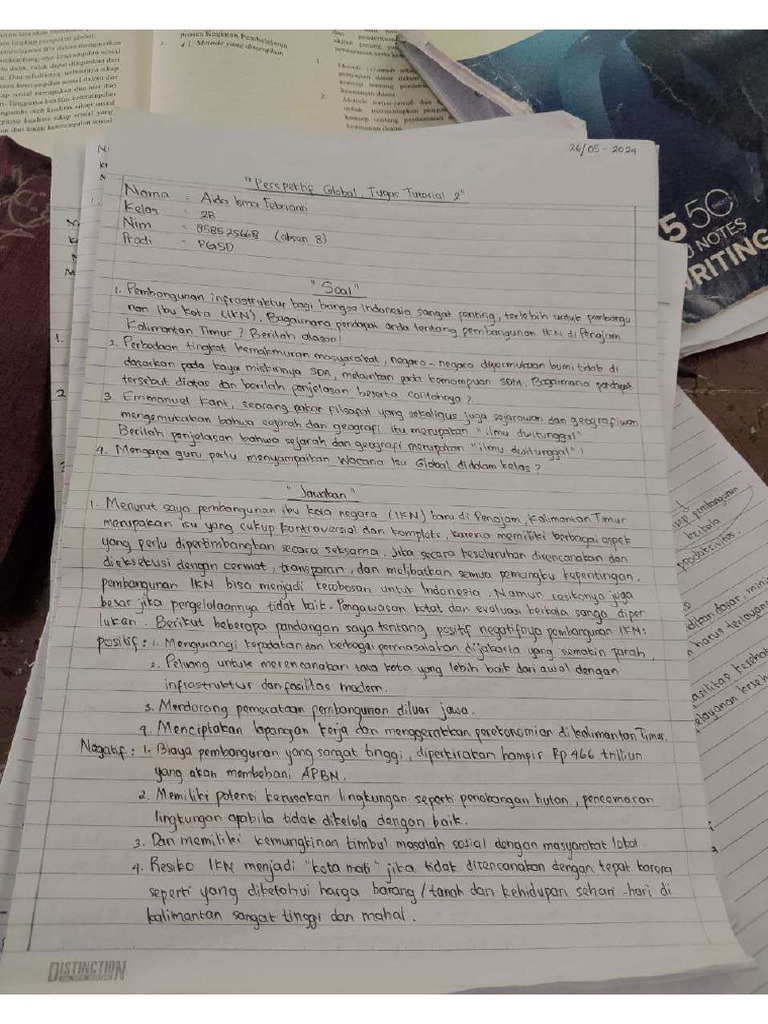 proses Kegiatan Pembelajaran
4.1 Metode yang diterapkan
50
NOTES
WRITING
26/05-2024
"Perspektif Global, Tugas Tutorial 2"
Nama : Aida Isma Febrianti
Kelas : 2B
Nim : 858525668 (absen 8)
Prodi : PGSD
"Soal"
1. Pembangunan infrastruktur bagi bangsa Indonesia sangat penting, terlebih untuk pembangu
nan Ibu Kota (IKN). Bagaimana pendapak anda tentang pembangunan IKN di Penajam
Kalimantan Timur? Berilah alasan!
2. Perbedaan tingkat kemakmuran masyarakat, negara-negara dipermukaan bumi tidak di
dasarkan pada kaya miskinnya SDA, melainkan pada kemampuan SDM. Bagaimana pendapat
tersebut diatas dan berilah penjelasan beserta contohnya?
3. Emmanuel Kant, seorang pakar filsapot yang sekaligus juga sejarawan dan geografiwan
mengemukakan bahwa sejarah dan geografi itu merupakan "ilmu dwitunggal"
Berilah penjelasan bahwa sejarah dan geografi merupakan "ilmu dwitunggal"!
4. Mengapa guru perlu menyampaikan Wacana Isu Global didalam kelas?
"Jawaban"
1. Menurut saya pembangunan ibu kota negara (IKN) baru di Penajam, Kalimantan Timur
merupakan isu yang cukup kontroversial dan kompleks, karena memiliki berbagai aspek
yang perlu dipertimbangkan secara seksama. Jika secara keseluruhan direncanakan dan
dieksekusi dengan cermat, transparan, dan melibatkan semua pemangku kepentingan,
pembangunan IKN bisa menjadi terobosan untuk Indonesia. Namun resikonya juga
besar jika pengelolaannya tidak baik. Pengawasan ketat dan evaluasi berkala sanga diper
lukan. Berikut beberapa pandangan saya tentang positif negatifnya pembangunan IKN:
positif : 1. Mengurangi kepadatan dan berbagai permasalahan dijakarta yang semakin parah,
2. Peluang untuk merencanakan tata kota yang lebih baik dari awal dengan
infrastruktur dan fasilitas modern.
3. Mendorong pemerataan pembangunan diluar jawa.
4. Menciptakan lapangan kerja dan menggerakkan perekonomian di kalimantan Timur.
Negatif : 1. Biaya pembangunan yang sangat tinggi, diperkirakan hampir Rp 466 triliun
yang akan membebani APBN.
2. Memiliki potensi kerusakan lingkungan seperti penebangan hutan, pencemaran
lingkungan apabila tidak dikelola dengan baik.
3. Dan memiliki kemungkinan timbul masalah sosial dengan masyarakat lokal.
4. Resiko IKN menjadi "kota mati" jika tidak direncanakan dengan tepat karena
seperti yang diketahui harga barang/tanah dan kehidupan sehari-hari di
kalimantan sangat tinggi dan mahal.
DISTINCTION